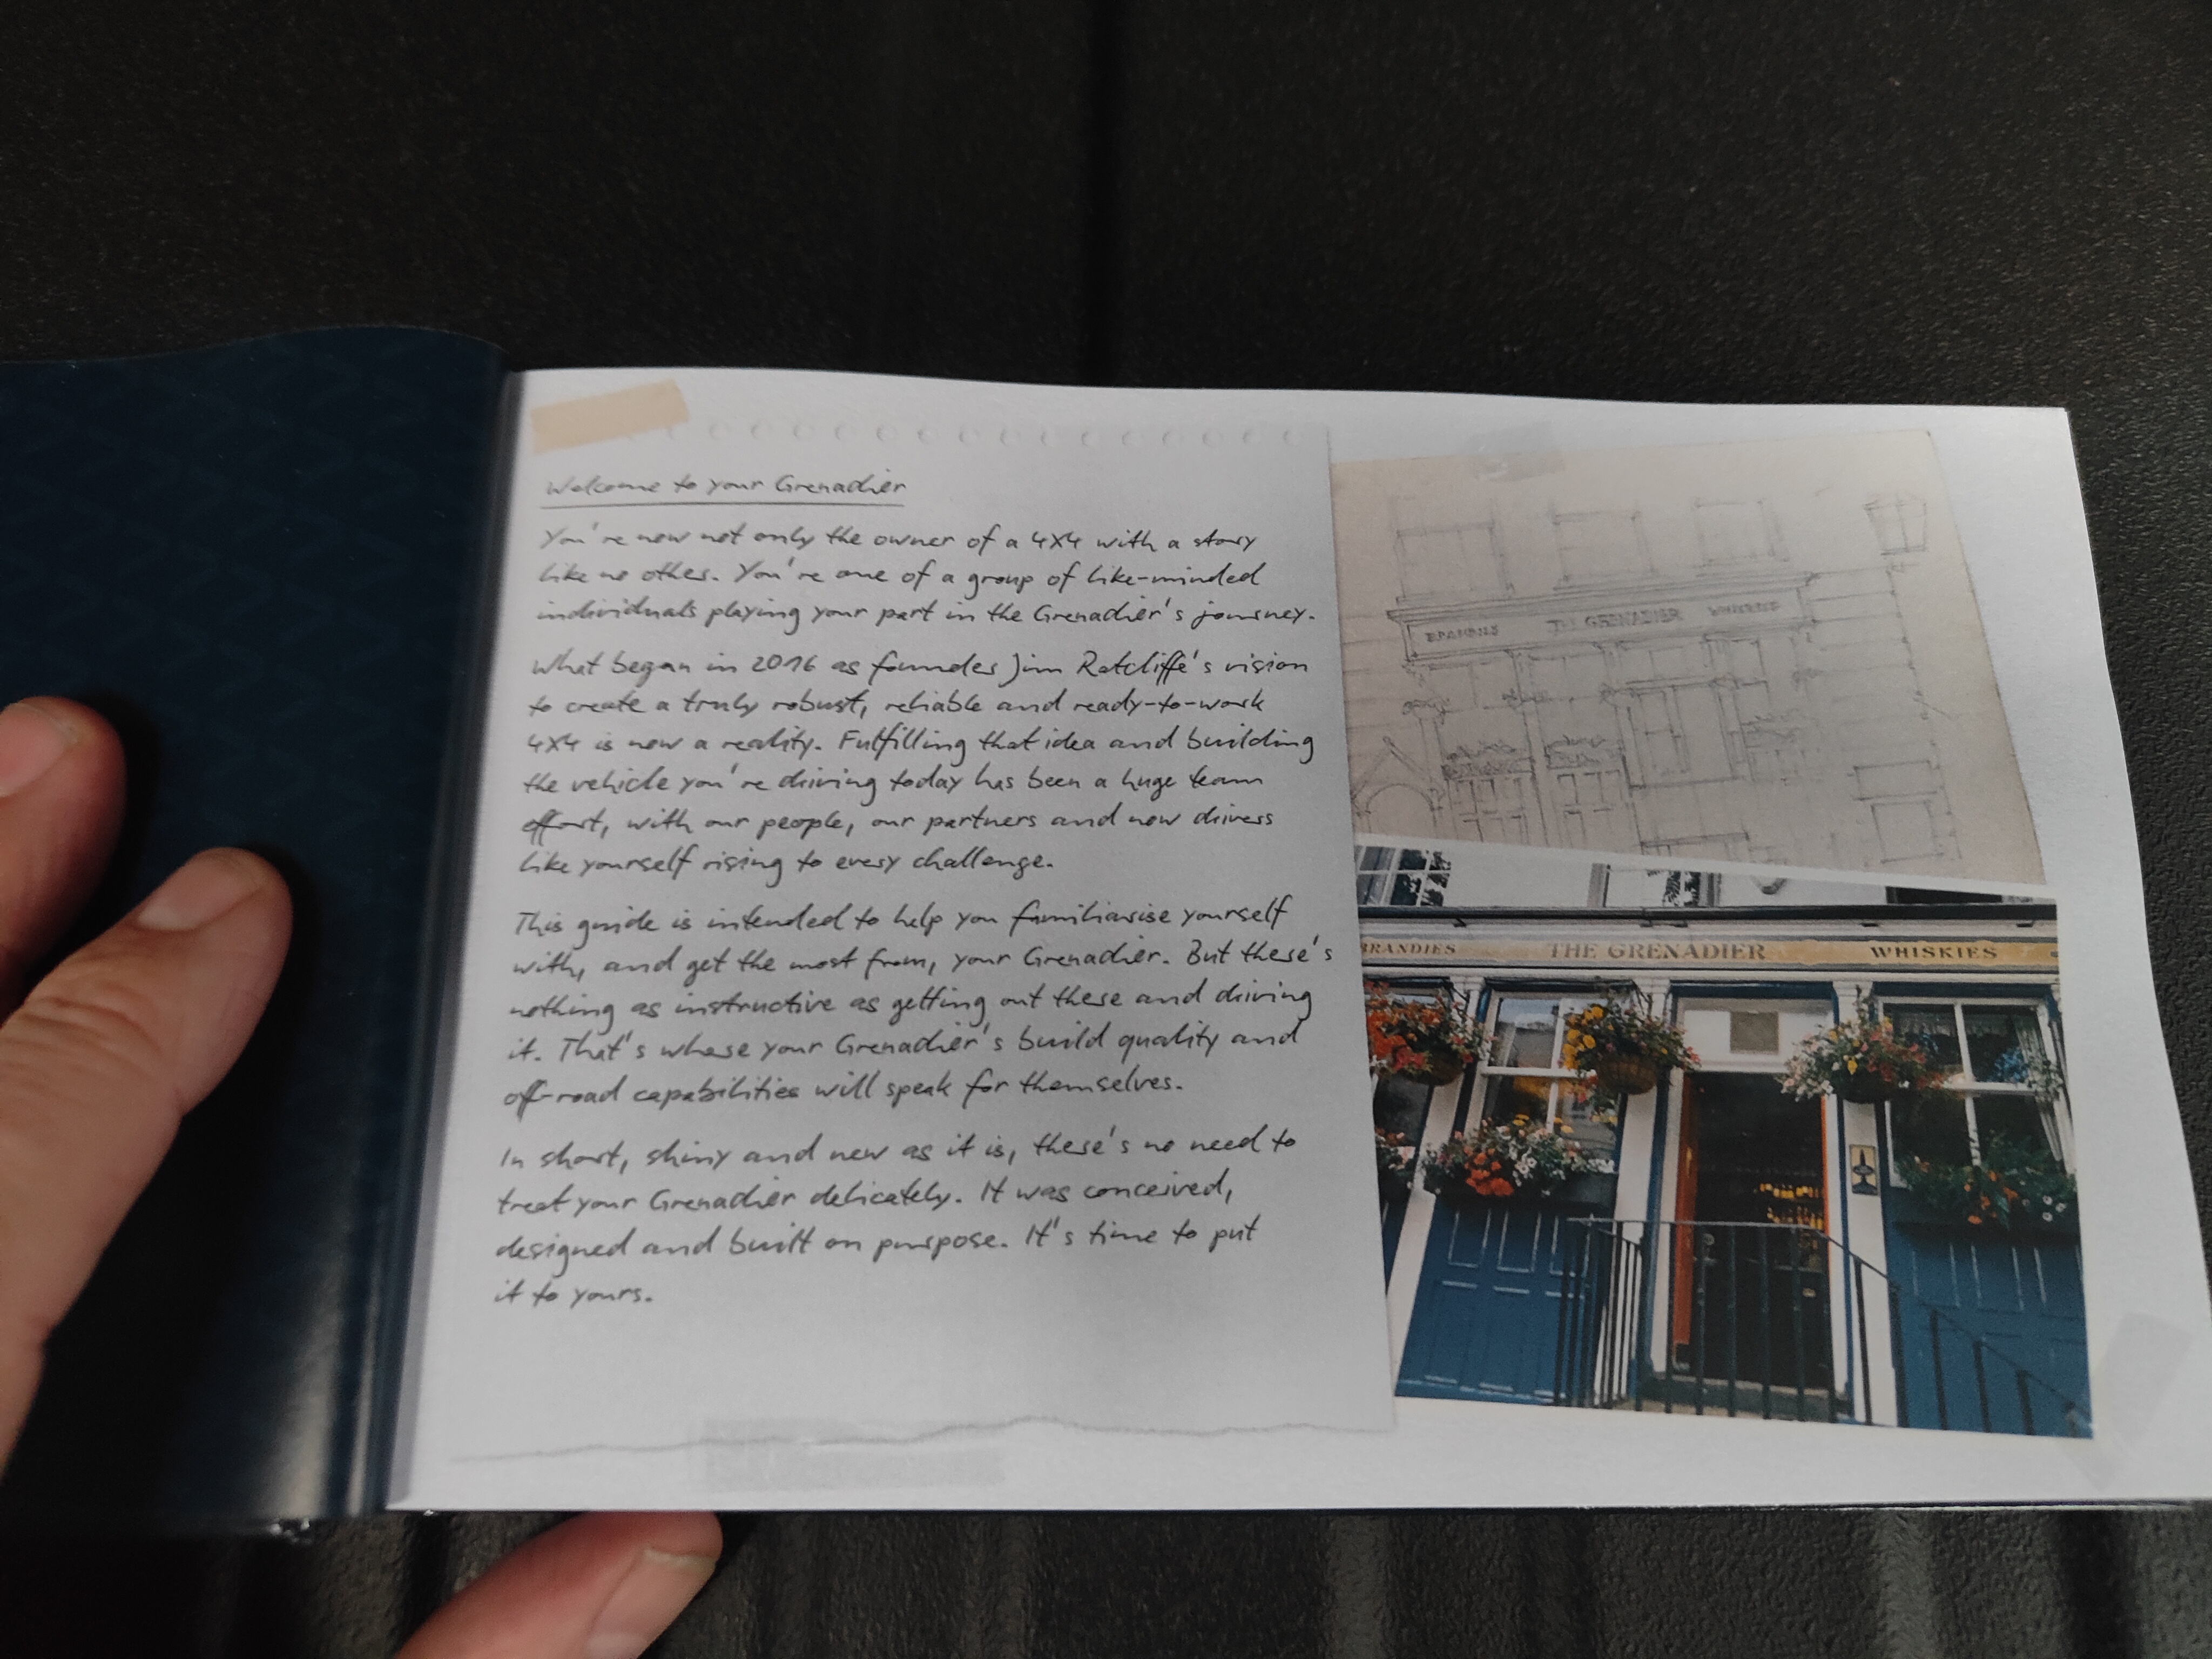 Welcome to your Grenadier
You're now not only the owner of a 4X4 with a story
like no other. You're one of a group of like-minded
individuals playing your part in the Grenadier's journey.
What began in 2016 as founder Jim Ratcliffe's vision
to create a truly robust, reliable and ready-to-work
4X4 is now a reality. Fulfilling that idea and building
the vehicle you're driving today has been a huge team
effort, with our people, our partners and now drivers
like yourself rising to every challenge.
This guide is intended to help you familiarise yourself
with, and get the most from, your Grenadier. But there's
nothing as instructive as getting out there and driving
it. That's where your Grenadier's build quality and
off-road capabilities will speak for themselves.
In short, shiny and new as it is, there's no need to
treat your Grenadier delicately. It was conceived,
designed and built on purpose. It's time to put
it to yours.
BRANDIES THE GRENADIER WHISKIES
BRANDIES THE GRENADIER WHISKIES